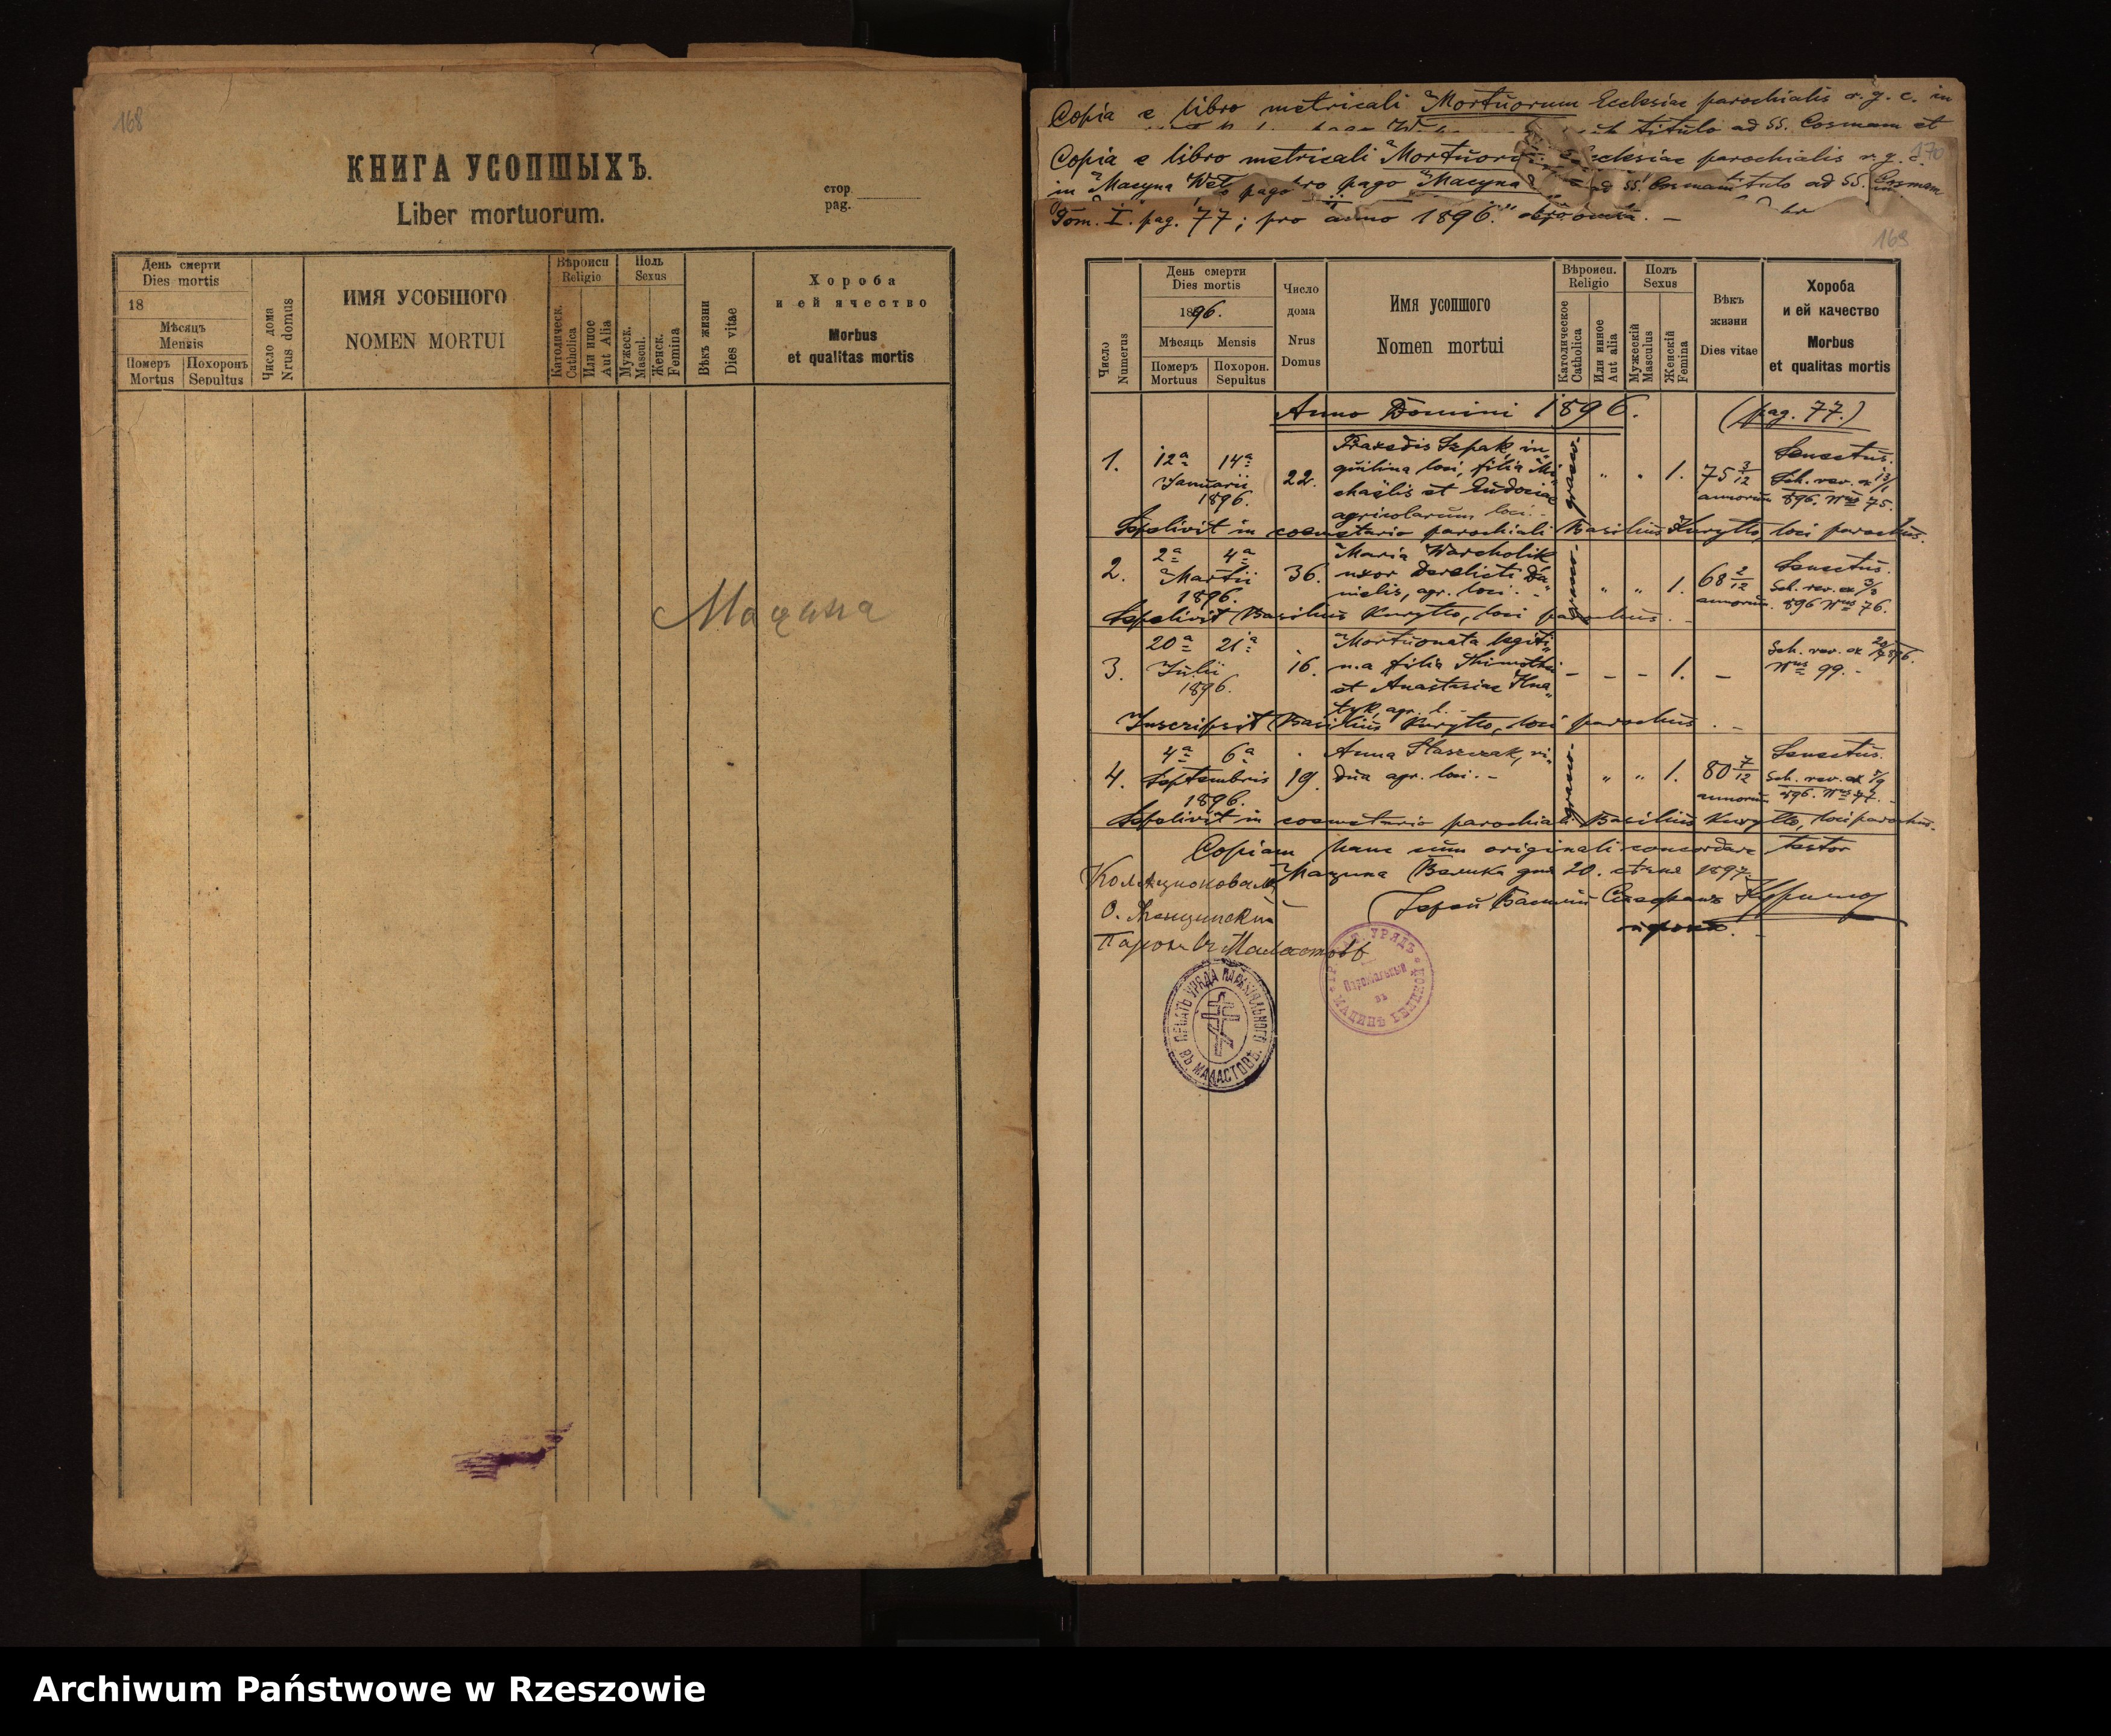 168
КНИГА УСОПШЫХЪ.
Liber mortuorum.
стор
pag.
День смерти
Dies mortis
18
Мѣсяцъ
Mensis
Померъ
Mortus
Похоронъ
Sepultus
Число дома
Nrus domus
ИМЯ УСОБШОГО
NOMEN MORTUI
Вѣроисп
Religio
Католическ.
Catholica
Или иное
Aut Alia
Полъ
Sexus
Мужеск.
Mascul.
Женск.
Femina
Вѣкъ жизни
Dies vitae
Хороба
и ей ячество
Morbus
et qualitas mortis
Мацина
Copia e libro metricali Mortuorum Ecclesiae parochialis r. g. c. in
titulo ad SS. Cosmam et
Copia e libro metricali Mortuorum Ecclesiae parochialis r. g. c.
170
in Macyna pago pro pago Macyna ad SS. Cosmam
Tom. I. pag. 77; pro anno 1896.
169
Число
Numerus
День смерти
Dies mortis
1896.
Мѣсяць Mensis
Померъ
Mortuus
Похорон.
Sepultus
Число
дома
Nrus
Domus
Имя усопшого
Nomen mortui
Вѣроисп.
Religio
Католическое
Catholica
Или инное
Aut alia
Полъ
Sexus
Мужескій
Masculus
Женскій
Femina
Вѣкъ
жизни
Dies vitae
Хороба
и ей качество
Morbus
et qualitas mortis
Anno Domini 1896. (pag. 77.)
1. 12a 14a Januarii 1896. 22. Praxedis Szpak, in-
quilina loci, filia Mi-
chaëlis et Eudociae
agricolarum loci.-
graeco- " " 1. 75 3/12 annorum
Senectus.
Sch. rev. ex 13/1
896. Nus 75.
Sepelivit in coemetario parochiali Basilius Kuryłło, loci parochus.
2. 2a 4a Martii 1896. 36. Maria Warcholik
uxor derelicti Da-
nielis, agr. loci. -
graeco- " " 1. 68 2/12 annorum.
Senectus.
Sch. rev. ex 3/3
896 Nus 76.
Sepelivit Basilius Kuryłło, loci parochus. -
3. 20a 21a Julii 1896. 16. Mortuonata legiti-
ma filia Thimothei
et Anastasiae Hna-
tyk, agr. l. -
- - - 1. -
Sch. rev. ex 20/7 896.
Nus 99. -
Inscripsit Basilius Kuryłło, loci parochus. -
4. 4a 6a Septembris 1896. 19. Anna Staszczak, vi-
dua agr. loci. -
graeco- " " 1. 80 7/12 annorum
Senectus.
Sch. rev. ex 5/9
896. Nus 77. -
Sepelivit in coemetario parochiali Basilius Kuryłło, loci parochus.
Copiam hanc cum originali concordare testor
Мацина Велика дня 20. 1897.
Колляціоновалъ
О.
Парохъ въ Маластовѣ
УРЯДЪ
Парохіальный
въ
МАЦИНѢ ВЕЛИКОЙ
ПЕЧАТЬ УРЯДА ПАРОХІАЛЬНОГО
ВЪ МАЛАСТОВѢ.
Archiwum Państwowe w Rzeszowie